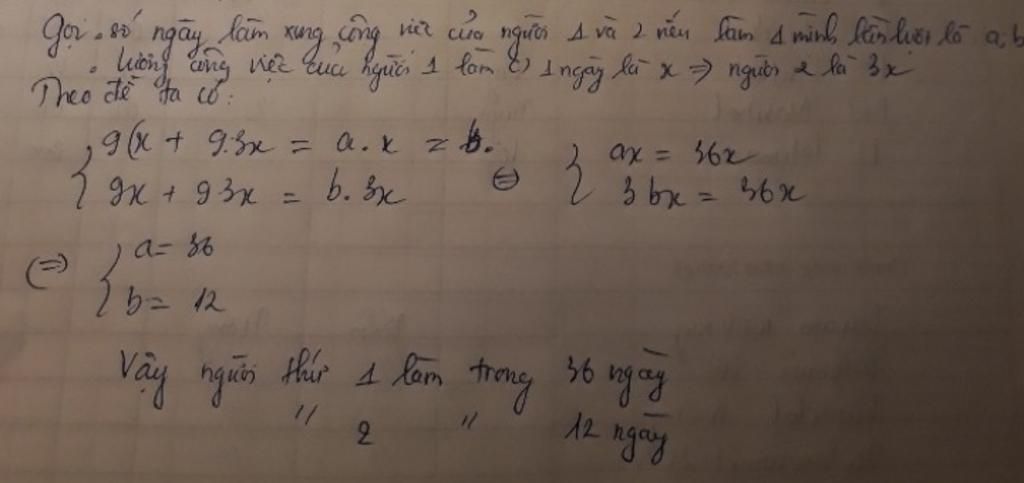 Gọi . số ngày làm xong công việc của người 1 và 2 nếu làm 1 mình lần lượt là a, b
. lượng công việc của người 1 làm 1 ngày là x ⇒ người 2 là 3x
Theo đề ta có:
{ 9(x + 9.3x = a.x = b. ⇔ { ax = 36x
{ 9x + 9 3x = b.3x { 3bx = 36x
(⇒) { a = 36
{ b = 12
Vậy người thứ 1 làm trong 36 ngày
" 2 " 12 ngày